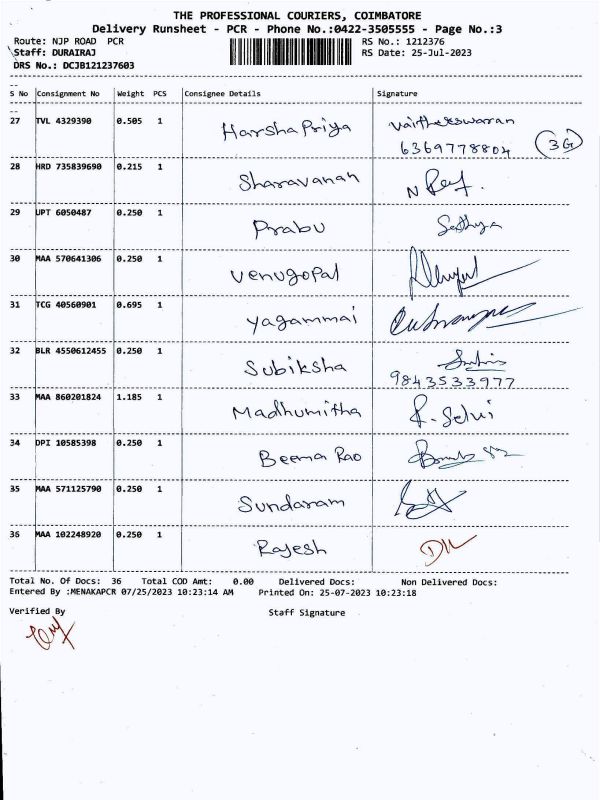 THE PROFESSIONAL COURIERS, COIMBATORE
Delivery Runsheet - PCR - Phone No.:0422-3505555 - Page No.:3
Route: NJP ROAD PCR RS No.: 1212376
Staff: DURAIRAJ RS Date: 25-Jul-2023
DRS No.: DCJB121237603
S No Consignment No Weight PCS Consignee Details Signature
27 TVL 4329390 0.505 1 HarshaPriya Vaitheeswaran
6369778804 3G
28 HRD 735839690 0.215 1 Sharavanan
29 UPT 6050487 0.250 1 Prabu Sathya
30 MAA 570641306 0.250 1 Venugopal
31 TCG 40560901 0.695 1 Yagammai
32 BLR 4550612455 0.250 1 Subiksha
9843533977
33 MAA 860201824 1.185 1 Madhumitha R. Selvi
34 DPI 10585398 0.250 1 Beema Rao
35 MAA 571125790 0.250 1 Sundaram
36 MAA 102248920 0.250 1 Rajesh
Total No. Of Docs: 36 Total COD Amt: 0.00 Delivered Docs: Non Delivered Docs:
Entered By :MENAKAPCR 07/25/2023 10:23:14 AM Printed On: 25-07-2023 10:23:18
Verified By Staff Signature